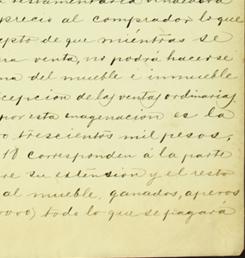 testamentaria vendedora
precio al comprador lo que
cepto de que miéntras se
na venta, no podrá hacerse
na del mueble é inmueble
cepcion de las ventas ordinarias
por esta enagenacion es la
o trescientos mil pesos,
18 corresponden á la parte
re su estension y el resto
al mueble, ganados, aperos
000) todo lo que se pagará